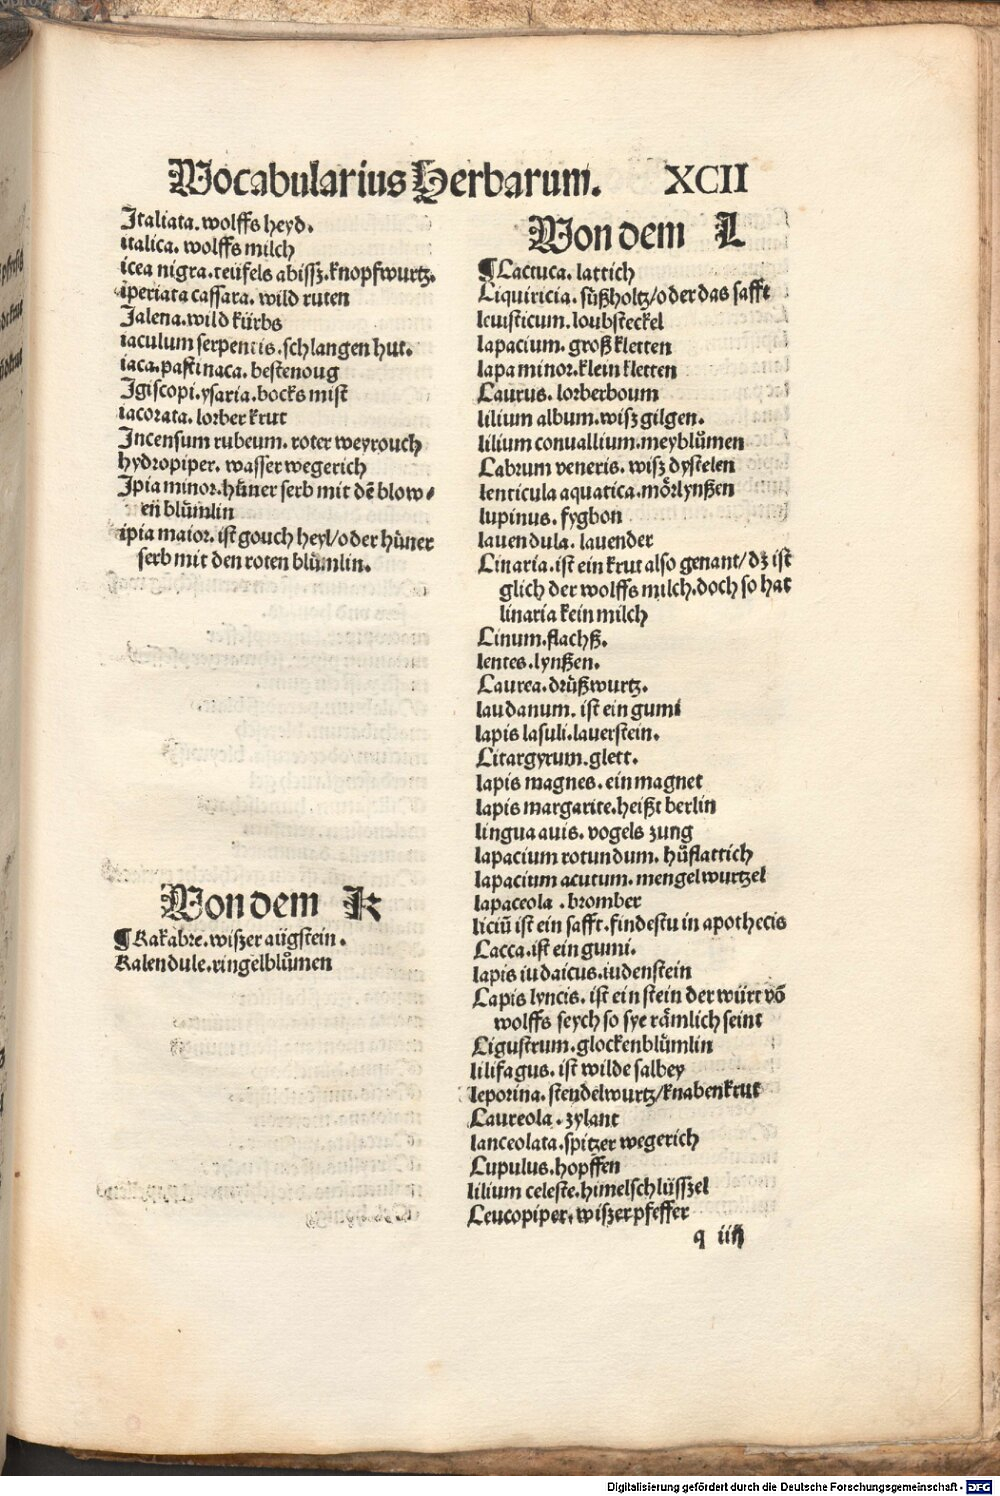 Vocabularius Herbarum. XCII
Italiata. wolffs heyd.
italica. wolffs milch
icea nigra. teüfels abissz. knopfwurtz.
iperiata cassara. wild ruten
Jalena. wild kürbs
iaculum serpentis. schlangen hut.
iaca. pastinaca. bestenoug
Igiscopi. ysaria. bocks mist
iacorata. lorber krut
Incensum rubeum. roter weyrouch
hydropiper. wasser wegerich
Ipia minor. hüner serb mit dē blow⸗
en blümlin
ipia maior. ist gouch heyl/oder hüner
serb mit den roten blümlin.
Von dem K
¶ Kakabre. wiszer aügstein.
Kalendule. ringelblůmen
Von dem L
¶ Lactuca. lattich
Liquiricia. süßholtz/oder das safft
leuisticum. loubsteckel
lapacium. groß kletten
lapa minor. klein kletten
Laurus. lorberboum
lilium album. wisz gilgen.
lilium conuallium. meyblůmen
Labrum veneris. wisz dystelen
lenticula aquatica. mörlynßen
lupinus. fygbon
lauendula. lauender
Linaria. ist ein krut also genant/dz ist
glich der wolffs milch. doch so hat
linaria kein milch
Linum. flachß.
lentes. lynßen.
Laurea. drůßwurtz.
laudanum. ist ein gumi
lapis lasuli. laverstein.
Litargyrum. glett.
lapis magnes. ein magnet
lapis margarite. heißt berlin
lingua auis. vogels zung
lapacium rotundum. hůflattich
lapacium acutum. mengelwurtzel
lapaceola. bromber
liciū ist ein safft. findestu in apothecis
Lacca. ist ein gumi.
lapis iudaicus. iudenstein
Lapis lyncis. ist ein stein der würt võ
wolffs seych so sye rämlich seint
Ligustrum. glockenblümlin
lilifagus. ist wilde salbey
leporina. stendelwurtz/knabenkrut
Laureola. zylant
lanceolata. spitzer wegerich
Lupulus. hopffen
lilium celeste. himelschlüsszel
Leucopiper. wiszer pfeffer
q iiij
Digitalisierung gefördert durch die Deutsche Forschungsgemeinschaft - DFG